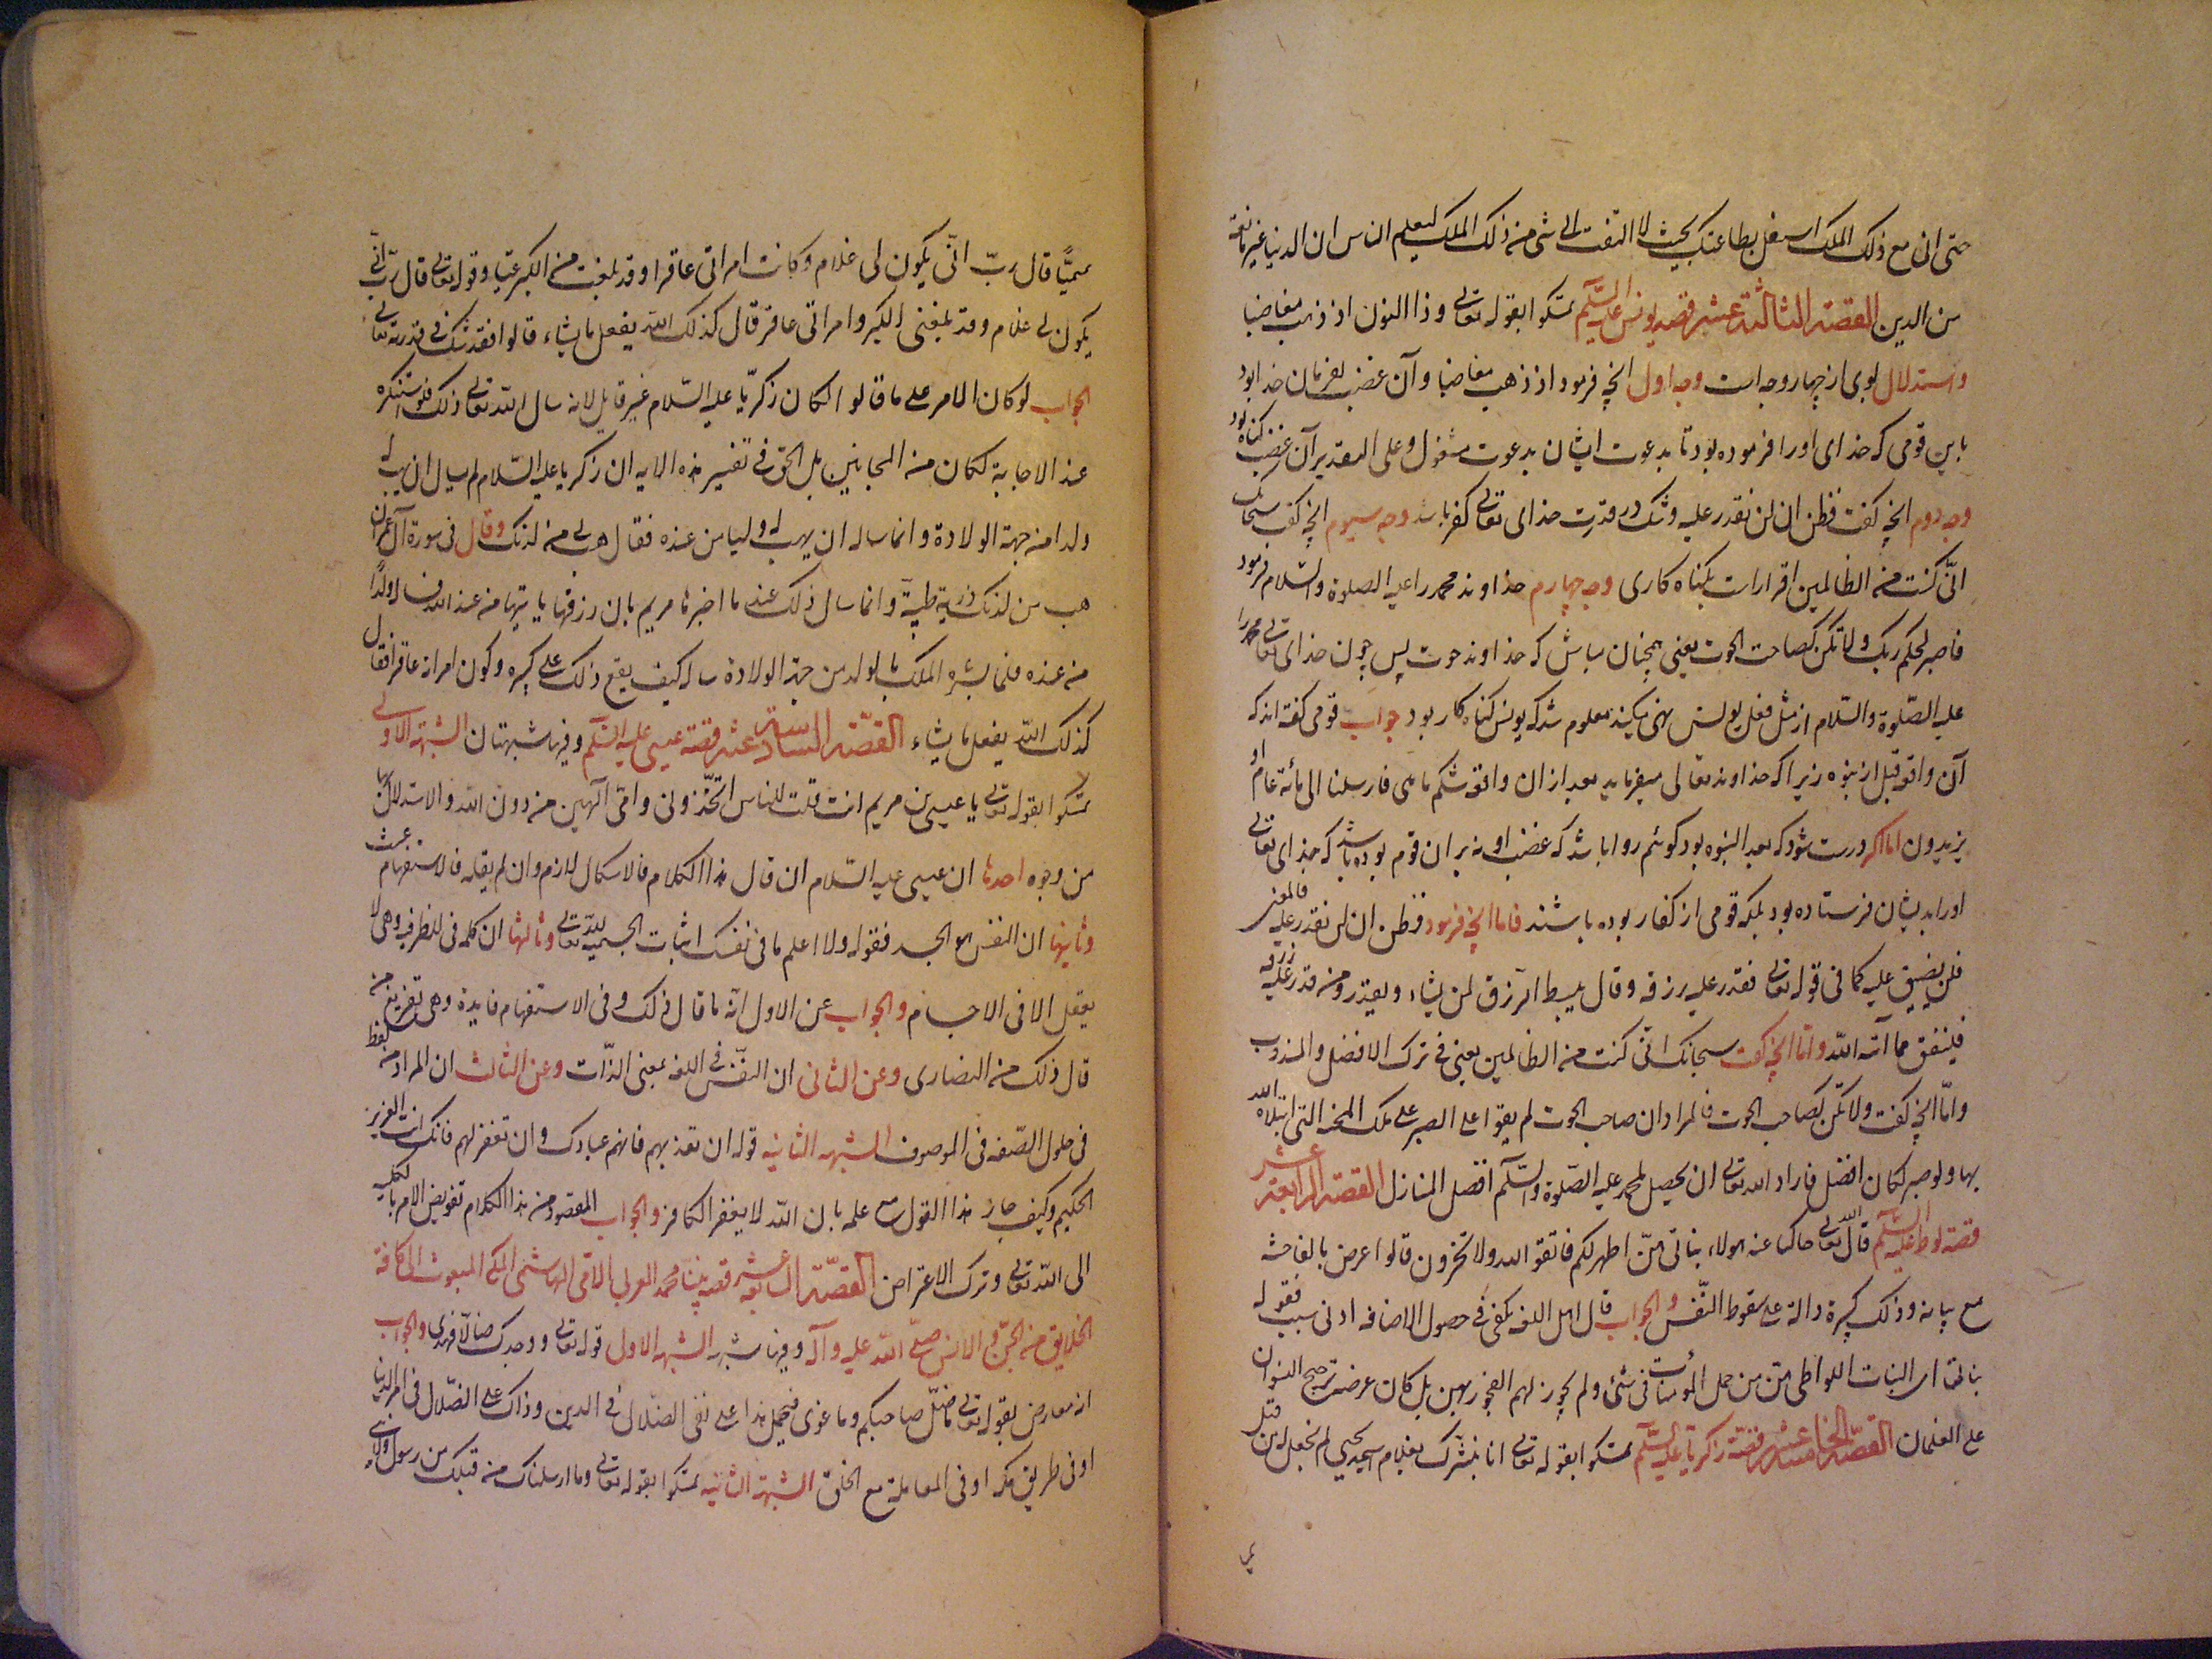 حتی انی مع ذلک الملک اشتغل بطاعتک بحیث لا التفت الی شئ من ذلک الملک لیعلم الناس ان الدنیا غیر مانعة
من الدین القصة الثالثة عشر قصه یونس علیه السّلم تمسکوا بقوله تعالی وذا النون اذ ذهب مغاضبا
واستدلال بوی از چهار وجه است وجه اول انچه فرمود اذ ذهب مغاضبا وآن غضب بفرمان خدا بود
باین قومی که خدای اورا فرموده بود تا بدعوت ایشان بدعوت مشغول وعلی التقدیر آن غضب گناه بود
وجه دوم انچه گفت فظن ان لن نقدر علیه وشک در قدرت خدای تعالی کفر باشد وجه سیوم انچه گفت سبحانک
انّی کنت من الظالمین اقرار است بگناه کاری وجه چهارم خداوند محمد را علیه الصلوة والسّلام فرمود
فاصبر لحکم ربک ولا تکن کصاحب الحوت یعنی همچنان مباش که خداوند حوت پس چون خدای تعالی محمد را
علیه الصّلوة والسّلام از مثل فعل یونس نهی میکند معلوم شد که یونس گناه کار بود جواب قومی گفته اند که
آن واقعه قبل از نبوه زیرا که خداوند تعالی میفرماید بعد از ان واقعه شکم ماهی فارسلنا الی مائة عام او
یزیدون اما اگر درست شود که بعد النبوه بود گوئیم روا باشد که غضب او نه بر ان قوم بوده باشد که خدای تعالی
اورا بدیشان فرستاده بود بلکه قومی از کفار بوده باشند فاما انچه فرمود فظن ان لن نقدر علیه فالمعنی
فلن یضیق علیه کما فی قوله تعالی فقدر علیه رزقه وقال یبسط الرّزق لمن یشاء ویقدر ومن قدر علیه رزقه
فلینفق مما آتیه اللّه وامّا انچه گفت سبحانک انّی کنت من الظالمین یعنی فی ترک الافضل والمندوب
وامّا انچه گفت ولا تکن کصاحب الحوت فالمراد ان صاحب الحوت لم یقوا علی الصبر علی تلک المحنة التی ابتلاه اللّه
بها ولو صبر لکان افضل فاراد اللّه تعالی ان یحصل لمحمد علیه الصّلوة والسّلم افضل المنازل القصة الرابعة عشر
قصة لوط علیه السّلم قال اللّه تعالی حاکیا عنه هولاء بناتی هنّ اطهر لکم فاتقوا اللّه ولا تخزون قالوا عرض بالفاحشه
مع بناته وذلک کبیرة دالة علی سقوط النّفس والجواب قال اهل اللغه یکفی فی حصول الاضافه ادنی سبب فقوله
بناتی ای البنات اللواطی هن من جمل المومنات فی شئ ولم یجوز لهم الفجور بهن بل کان عرضه ترجیح النسوان
علی الغلمان القصّة الخامسة عشر قصّة زکریّا علیه السّلم تمسکوا بقوله تعالی انا نبشرک بغلام اسمه یحیی لم نجعل له من قبل
سمیّا قال ربّ انّی یکون لی غلام وکانت امراتی عاقرا وقد بلغت من الکبر عتیا وقوله تعالی قال ربّ انّی
یکون لی غلام وقد بلغنی الکبر وامراتی عاقر قال کذلک اللّه یفعل ما یشاء قالوا فقد شک فی قدرته تعالی
الجواب لو کان الامر علی ما قالوا لکان زکریّا علیه السّلام غیر قایل لانه سال اللّه تعالی ذلک فلو استنکره
عند الاجابة لکان من المجانین بل الحق فی تفسیر هذه الایه ان زکریا علیه السّلام لم یسال ان یهب له
ولدا من جهة الولادة وانما ساله ان یهب له ولیا من عنده فقال هب لی من لدنک وقال فی سورة آل عمران
هب من لدنک ذریة طیبّة وانما سال ذلک عند ما اخبرتها مریم بان رزقها یاتیها من عند اللّه فسال ولدًا
من عنده فلما بشره الملک بالولد من جهة الولادة ساله کیف یقع ذلک علی کبره وکون امراته عاقرا فقال
کذلک اللّه یفعل ما یشاء القصّة السادسة عشر قصّة عیسی علیه السّلم وفیها شبهتان الشبهة الاولی
تمسکوا بقوله تعالی یا عیسی بن مریم انت قلت للناس اتخّذونی وامّی آلهین من دون اللّه والاستدلال بها
من وجوه احدها ان عیسی علیه السّلام ان قال هذا الکلام فالاشکال لازم وان لم یقله فالاستفهام عبث
وثانیها ان النفس هو الجسد فقوله ولا اعلم ما فی نفسک اثبات الجسمیة للّه تعالی وثالثها ان کلمه فی للظرف وهی لا
یعقل الا فی الاجسام والجواب عن الاول انّه ما قال ذلک وفی الاستفهام فایدة وهی تقریع من
قال ذلک من النصاری وعن الثانی ان النّفس فی اللغه بمعنی الذّات وعن الثالث ان المراد من لفظ
فی حلول الصّفه فی الموصوف الشبهه الثانیه قوله ان تعذبهم فانهم عبادک وان تغفر لهم فانک انت العزیز
الحکیم وکیف جاز هذا القول مع علمه بان اللّه لا یغفر الکافر والجواب المقصود من هذا الکلام تفویض الامر بالکلیه
الی اللّه تعالی وترک الاعتراض القصّة السابعة عشر قصة نبینا محمد العربی الامّی الهاشمی المکی المبعوث الی کافة
الخلایق من الجنّ والانس صلّی اللّه علیه وآله وفیها شبهه الشبهه الاول قوله تعالی ووجدک ضالّا فهدی والجواب
انه معارض بقوله تعالی ما ضلّ صاحبکم وما غوی فیحمل هذا علی نفی الضلال فی الدین وذاک علی الضّلال فی امر الدنیا
او فی طریق مکه او فی المعاملة مع الخلق الشبهة الثانیه تمسکوا بقوله تعالی وما ارسلناک من قبلک من رسول ولا نبی